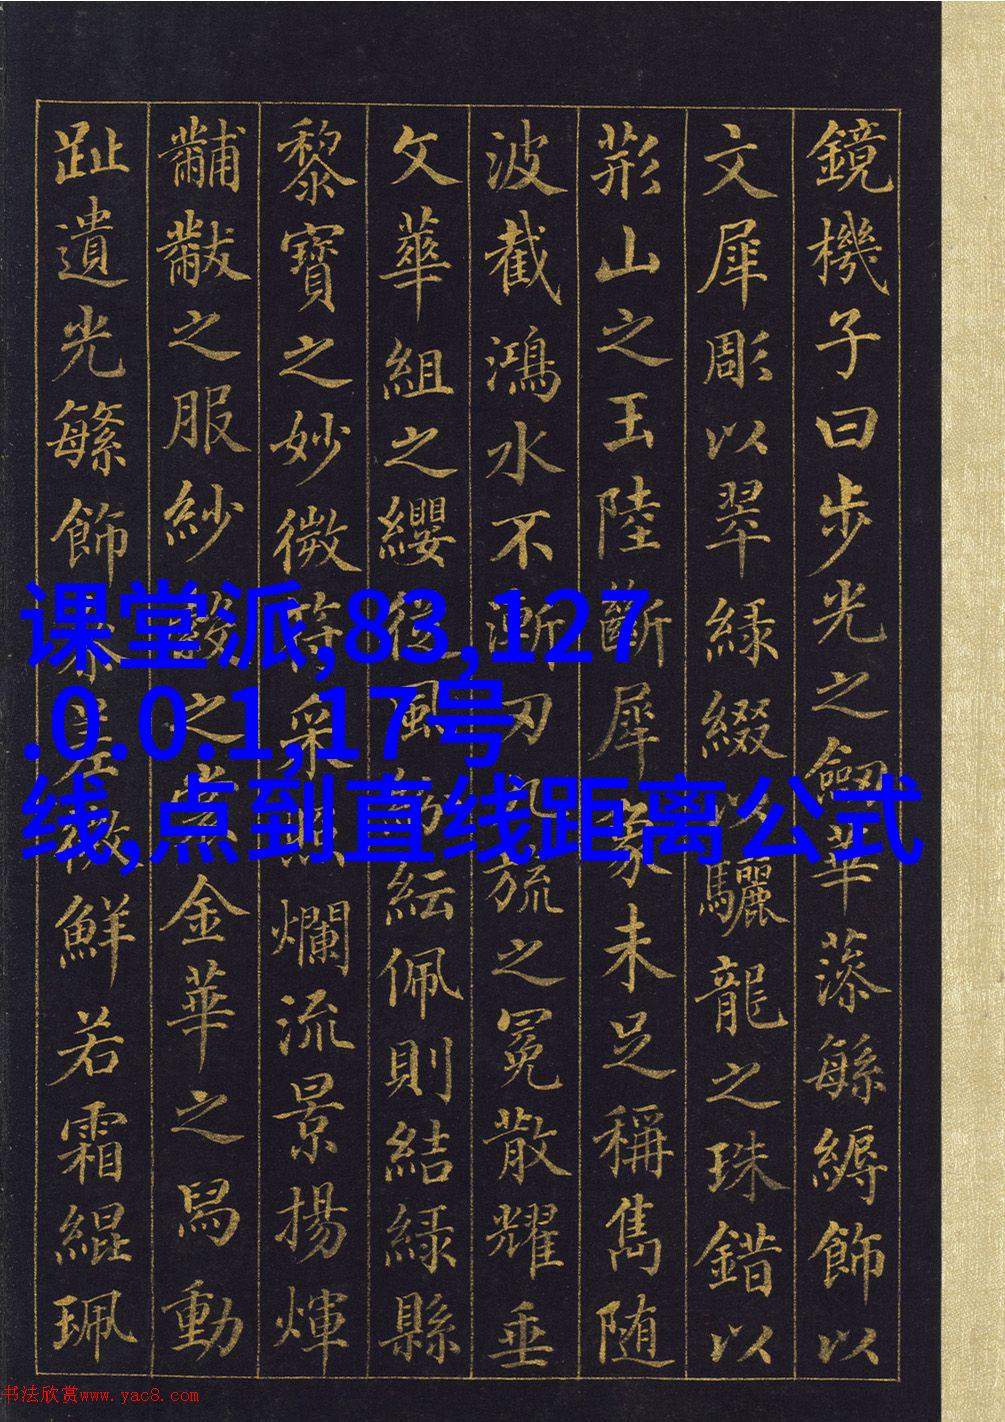 鏡機子曰步光之劔華藻緐縟飾以
文犀彫以翠緑綴以驪龍之珠錯以
荊山之玉陸斷犀象未足稱雋随
波截鴻水不漸刃九旒之冕散耀垂
文華組之纓從風紛紜佩則結緑縣
黎寶之妙微符采照爛流景揚煇
黼黻之服紗縠之裳金華之舄動
趾遺光繁飾參差微鮮若霜緄珮
课堂派,83,127
.0.0.1,17号
线,点到直线距离公式
书法欣赏www.yac8.com